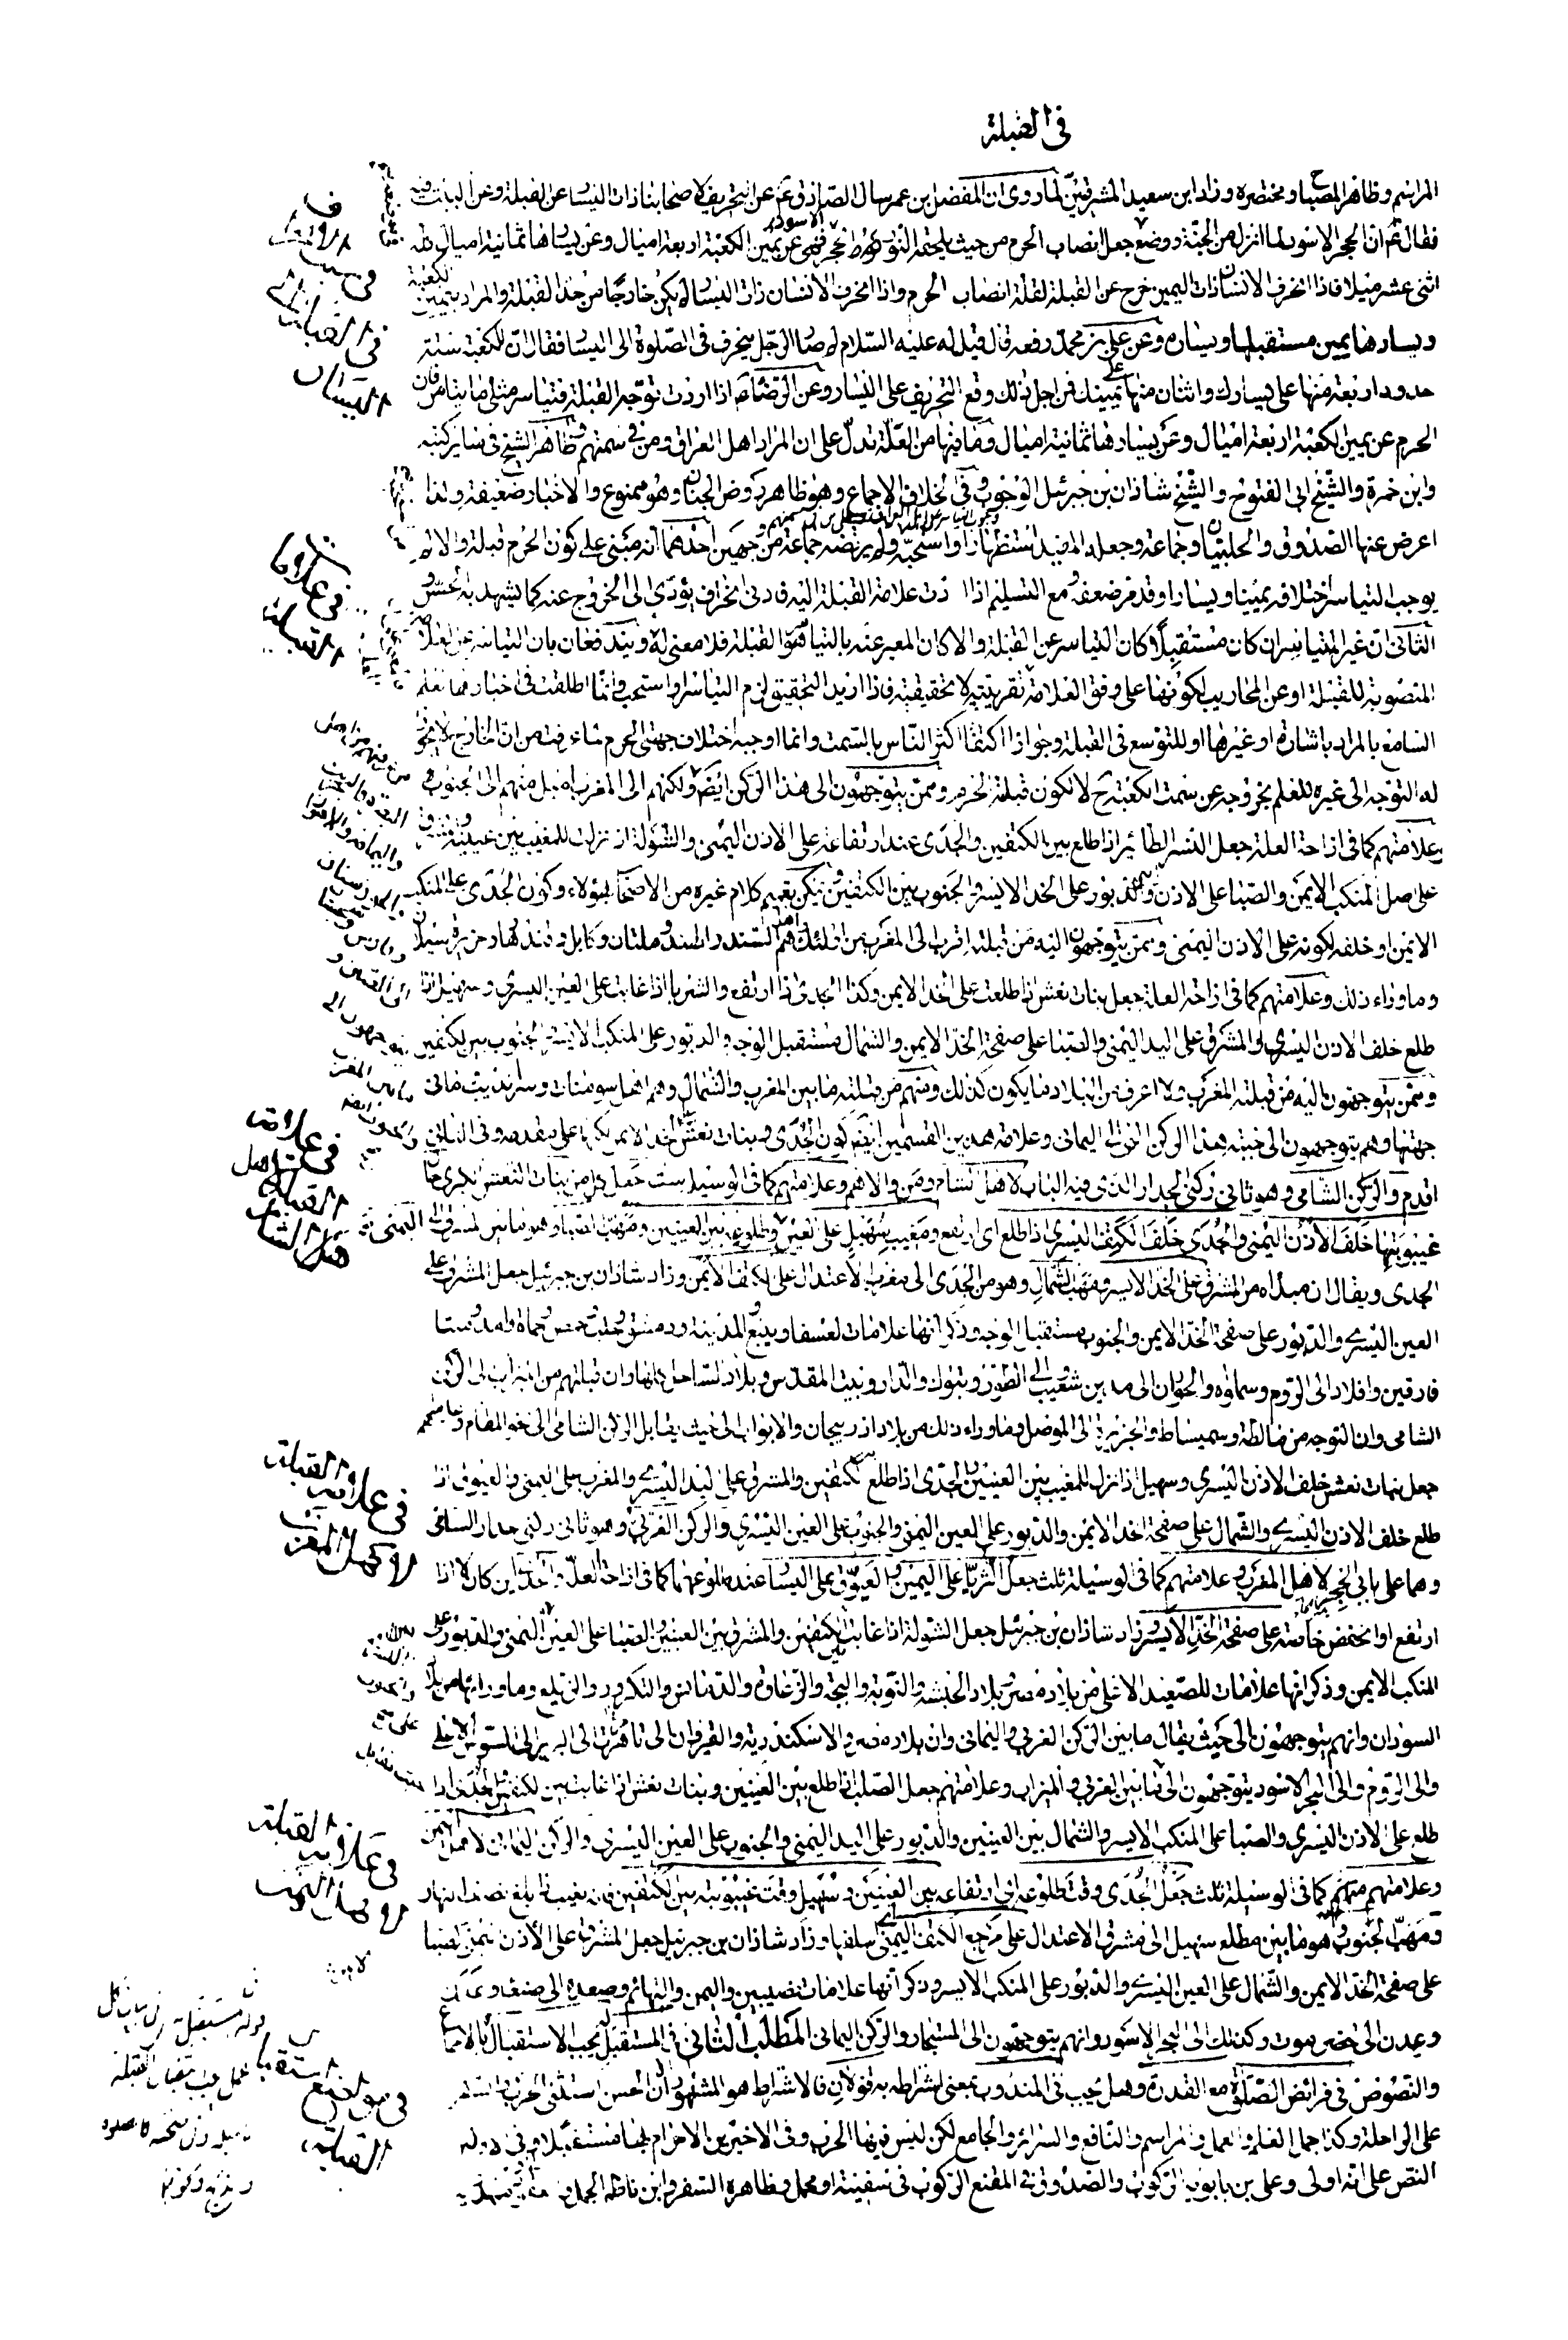 في القبلة
المراسم وظاهر المصباح ومختصره وزاد ابن سعيد المشرقيين لما روى ان المفضل بن عمر سال الصادق ع عن التحريف لاصحابنا ذات اليسار عن القبلة وعن السبب فيه
فقال ع ان الحجر الاسود لما انزل من الجنة ووضع جعل انصاب الحرم من حيث يلحقه النور نور الحجر فهي عن يمين الكعبة اربعة اميال وعن يسارها ثمانية اميال كله
اثنى عشر ميلا فاذا انحرف الانسان ذات اليمين خرج عن القبلة لقلة انصاب الحرم واذا انحرف الانسان ذات اليسار لم يكن خارجا من حد القبلة والمراد بيمين الكعبة
ويسارها يمين مستقبلها ويساره وعن علي بن محمد رفعه قال قيل له عليه السلام لم صار الرجل ينحرف في الصلوة الى اليسار فقال ان للكعبة ستة
حدود اربعة منها على يسارك واثنان منها على يمينك فمن اجل ذلك وقع التحريف على اليسار وعن الرضا ع اذا اردت توجه القبلة فتياسر مثلى ما تيامن فان
الحرم عن يمين الكعبة اربعة اميال وعن يسارها ثمانية اميال وما فيها من العلة تدل على ان المراد اهل العراق ومن في سمتهم وظاهر الشيخ في ساير كتبه
وابن حمزة والشيخ ابي الفتوح والشيخ شاذان بن جبرئيل الوجوب وفي الخلاف الاجماع وهو ظاهر روض الجنان وهو ممنوع والاخبار ضعيفة ولذا
اعرض عنها الصدوق والحلبيان وجماعة وجعله المفيد استظهارا واستحبه ولم يرتضه جماعة من جهتين احدهما انه مبني على كون الحرم قبلة والا لم
يوجب التياسر اختلافه يمينا ويسارا وقد مر ضعفه ومع التسليم اذا ادت علامة القبلة اليه فادنى انحراف يؤدي الى الخروج عنه كما يشهد به الحس و
الثاني ان غير المتياسر ان كان مستقبلا كان التياسر عن القبلة والا كان المعبر عنه بالتياسر هو القبلة فلا معنى له ويندفعان بان التياسر عن العلامة
المنصوبة للقبلة او عن المحاريب لكونها على وفق العلامة تقريبية لا تحقيقية فاذا اريد التحقيق لزم التياسر او استحب وانما اطلقت في اخبارهما لعلم
السامع بالمراد باشارة او غيرها او للتوسع في القبلة وجواز اكتفاء اكثر الناس بالسمت وانما اوجبه اختلاف جهتي الحرم
له التوجه الى غيره للعلم بخروجه عن سمت الكعبة ح لا لكون قبلته الحرم وممن يتوجهون الى هذا الركن ايضا ولكنهم الى المغرب اميل منهم الى الجنوب
وعلامتهم كما في ازاحة العلة جعل النسر الطائر اذا طلع بين الكتفين والجدي عند ارتفاعه على الاذن اليمنى والشولة اذا نزلت للمغيب بين عينيه
على اصل المنكب الايمن والصبا على الاذن والدبور على الخد الايسر والجنوب بين الكتفين ويمكن تعميم كلام غيره من الاصحاب لهؤلاء وكون الجدي على المنكب
الايمن او خلفه لكونه على الاذن اليمنى وممن يتوجهون اليه من قبلته اقرب الى المغرب من اولئك هم اهل السند والهند وملتان وكابل وقندهار وجزيرة سيلان
وما وراء ذلك وعلامتهم كما في ازاحة العلة جعل بنات نعش اذا طلعت على الخد الايمن وكذا الجدي اذا ارتفع والثريا اذا غابت على العين اليسرى وسهيل اذا
طلع خلف الاذن اليسرى والمشرق على اليد اليمنى والصبا على صفحة الخد الايمن والشمال مستقبل الوجه والدبور على المنكب الايسر والجنوب بين الكتفين
وممن يتوجهون اليه من قبلته المغرب ولا اعرف من البلاد ما يكون كذلك ومنهم من قبلته ما بين المغرب والشمال وهم اهل سومنات وسرنديب وما في
جهتها وهم يتوجهون الى جنبة هذا الركن اليماني وعلامة هذين القسمين ايضا كون الجدي وبنات نعش على الخد الايمن
اقدم والركن الشامي وهو ثاني ركني الجدار الذي فيه الباب لاهل الشام ومن والاهم وعلامتهم كما في الوسيلة ست جعل بنات النعش الكبرى حال
غيبوبتها خلف الاذن اليمنى والجدي خلف الكتف اليسرى اذا طلع اى ارتفع ومغيب سهيل على العين اليمنى وطلوعه بين العينين ومهب الصبا وهو ما بين المشرق الى
الجدى ويقال ان مبدأه من المشرق على الخد الايسر ومهب الشمال وهو من الجدى الى مغرب الاعتدال على الكتف الايمن وزاد شاذان بن جبرئيل جعل المشرق على
العين اليسرى والدبور على صفحة الخد الايمن والجنوب مستقبل الوجه وذكر انها علامات لعسفان وينبع والمدينة ودمشق وحلب وحمص وحماة وامد وميا
فارقين وافلاد الى الروم وسماوة والجوبان الى مدين شعيب والى الطور وتبوك والدار وبيت المقدس وبلاد الساحل كلها وان قبلتهم من الميزاب الى الركن
الشامي وان التوجه من مالطة وسميساط والجزيرة الى الموصل وما وراء ذلك من بلاد اذربيجان والابواب الى حيث يقابل الركن الشامي الى نحو المقام وعلامتهم
جعل بنات نعش خلف الاذن اليسرى وسهيل اذا نزل للمغيب بين العينين والجدى اذا طلع بين الكتفين والمشرق على اليد اليسرى والمغرب على اليمنى والعيوق اذا
طلع خلف الاذن اليسرى والشمال على صفحة الخد الايمن والدبور على العين اليمنى والجنوب على العين اليسرى والركن الغربي وهو ثاني ركني جدار الشامي
وهما على بابي الحجر لاهل المغرب وعلامتهم كما في الوسيلة ثلث جعل الثريا على اليمين والعيوق على اليسار عند طلوعهما كما في ازاحة العلة والجدي ان كان اذا
ارتفع او انخفض خاصة على صفحة الخد الايسر وزاد شاذان بن جبرئيل جعل الشولة اذا غابت بين الكتفين والمشرق بين العينين والصبا على العين اليمنى والدبور على
المنكب الايمن وذكر انها علامات للصعيد الاعلى من بلاد مصر وبلاد الحبشة والنوبة والبجة والزغاوة والدمانس والتكرور والزيلع وما وراءها من بلاد
السودان وانهم يتوجهون الى حيث يقابل ما بين الركن الغربي واليماني وان بلاد مصر والاسكندرية والقيروان الى تاهرت الى البربر الى السوس الاقصى
والى الروم والى البحر الاسود يتوجهون الى ما بين الغربي والميزاب وعلامتهم جعل الصليب اذا طلع بين العينين وبنات نعش اذا غابت بين الكتفين والجدى اذا
طلع على الاذن اليسرى والصبا على المنكب الايسر والشمال بين العينين والدبور على اليد اليمنى والجنوب على العين اليسرى والركن اليماني لاهل اليمن
وعلامتهم كما في الوسيلة ثلث جعل الجدى وقت طلوعه اى ارتفاعه بين العينين وسهيل وقت غيبوبته بين الكتفين
ومهب الجنوب وهو ما بين مطلع سهيل الى مشرق الاعتدال على مرجع الكتف اليمنى اى اسفلها وزاد شاذان بن جبرئيل جعل المشرق على الاذن اليمنى والصبا
على صفحة الخد الايمن والشمال على العين اليسرى والدبور على المنكب الايسر وذكر انها علامات نصيبين واليمن والتهائم وصعدة الى صنعاء
وعدن الى حضرموت وكذلك الى البحر الاسود وانهم يتوجهون الى المستجار والركن اليماني المطلب الثاني في المستقبل له يجب الاستقبال بالاجماع
والنصوص في فرائض الصلوة مع القدرة وهل يجب في المندوب بمعنى اشتراطه به قولان فالاشتراط هو المشهور الا ان الحسن استثنى الحرب والسفر
على الراحلة وكذا جمل العلم والعمل والمراسم والنافع والشرائع والجامع لكن ليس فيها الحرب وفي الاخيرين الاحرام بها مستقبلا وفي
النص على انه اولى وعلي بن بابويه الركوب والصدوق في المقنع الركوب في سفينة او محمل وظاهره السفر وابن فاطمة الجمل
في علامات
القبلة
في علامات
القبلة لاهل الشام
في علامات القبلة
لاهل المغرب
في علامات القبلة
لاهل اليمن
في مواضع استقبال
القبلة